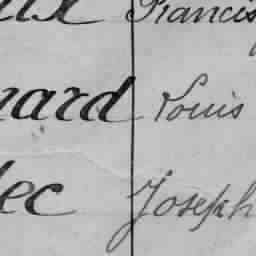 aux Francis
nard Louis
lec Joseph